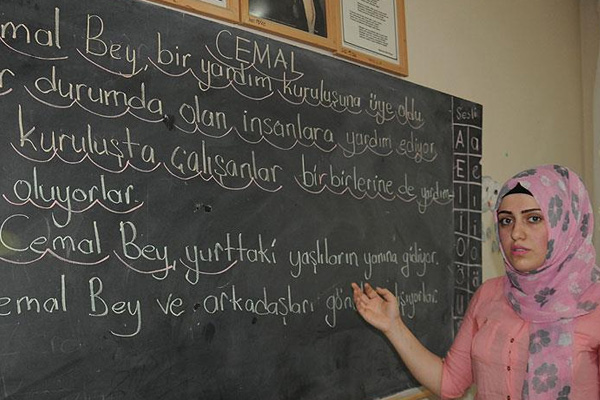 CEMAL
emal Bey, bir yardım kuruluşuna üye oldu.
r durumda olan insanlara yardım ediyor.
kuruluşta çalışanlar birbirlerine de yardım
oluyorlar.
Cemal Bey, yurttaki yaşlıların yanına gidiyor.
emal Bey ve arkadaşları
Sesli
A a
E e